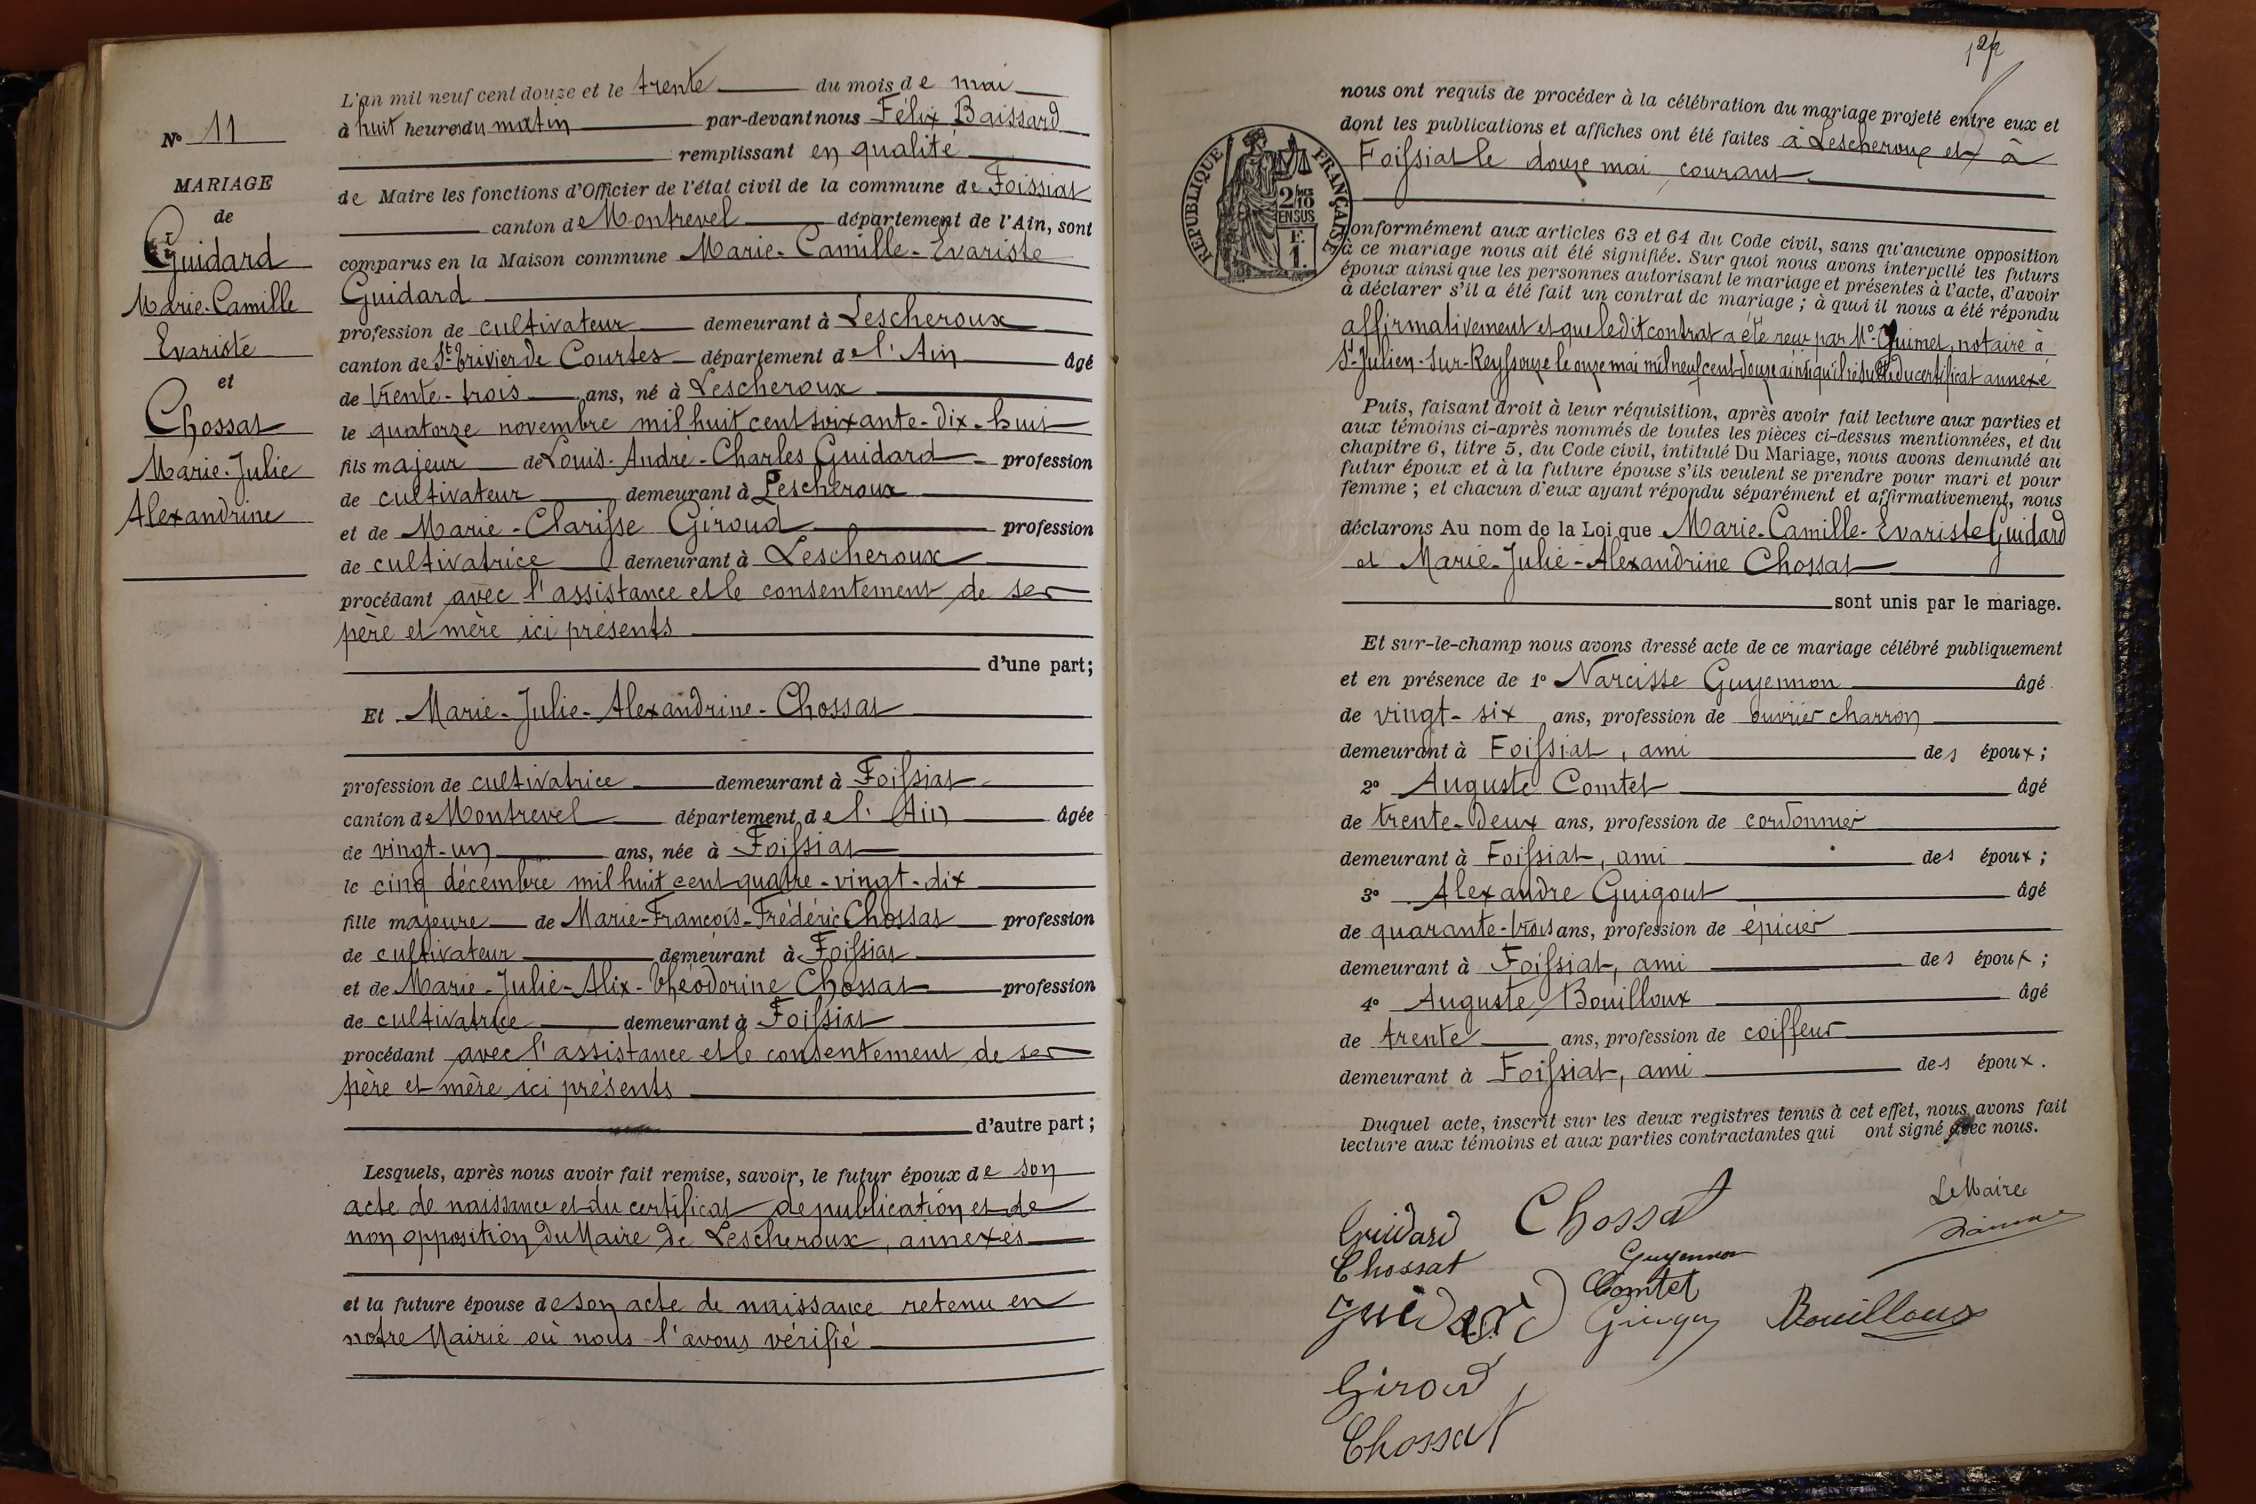 N° 11
MARIAGE
de
Guidard
Marie-Camille
Evariste
et
Chossat
Marie-Julie
Alexandrine
L'an mil neuf cent douze et le trente du mois de mai
à huit heures du matin par-devant nous Félix Baissard
remplissant en qualité
de Maire les fonctions d'Officier de l'état civil de la commune de Foissiat
canton de Montrevel département de l'Ain, sont
comparus en la Maison commune Marie-Camille-Evariste
Guidard
profession de cultivateur demeurant à Lescheroux
canton de St Trivier de Courtes département de l'Ain âgé
de trente-trois ans, né à Lescheroux
le quatorze novembre mil huit cent soixante-dix-huit
fils majeur de Louis-André-Charles Guidard profession
de cultivateur demeurant à Lescheroux
et de Marie-Clarisse Giroud profession
de cultivatrice demeurant à Lescheroux
procédant avec l'assistance et le consentement de ses
père et mère ici présents
d'une part;
Et Marie-Julie-Alexandrine-Chossat
profession de cultivatrice demeurant à Foissiat
canton de Montrevel département de l'Ain âgée
de vingt-un ans, née à Foissiat
le cinq décembre mil huit cent quatre-vingt-dix
fille majeure de Marie-François-Frédéric Chossat profession
de cultivateur demeurant à Foissiat
et de Marie-Julie-Alix-Théodorine Chossat profession
de cultivatrice demeurant à Foissiat
procédant avec l'assistance et le consentement de ses
père et mère ici présents
d'autre part;
Lesquels, après nous avoir fait remise, savoir, le futur époux de son
acte de naissance et du certificat de publication et de
non opposition du Maire de Lescheroux, annexés
et la future épouse de son acte de naissance retenu en
notre Mairie où nous l'avons vérifié
nous ont requis de procéder à la célébration du mariage projeté entre eux et
dont les publications et affiches ont été faites à Lescheroux et à
Foissiat le douze mai courant
RÉPUBLIQUE FRANÇAISE
2/10
EN SUS
F.
1.
conformément aux articles 63 et 64 du Code civil, sans qu'aucune opposition
à ce mariage nous ait été signifiée. Sur quoi nous avons interpellé les futurs
époux ainsi que les personnes autorisant le mariage et présentes à l'acte, d'avoir
à déclarer s'il a été fait un contrat de mariage ; à quoi il nous a été répondu
affirmativement et que ledit contrat a été reçu par Me Guimet, notaire à
St-Julien-sur-Reyssouze le onze mai mil neuf cent douze ainsi qu'il résulte du certificat annexé
Puis, faisant droit à leur réquisition, après avoir fait lecture aux parties et
aux témoins ci-après nommés de toutes les pièces ci-dessus mentionnées, et du
chapitre 6, titre 5, du Code civil, intitulé Du Mariage, nous avons demandé au
futur époux et à la future épouse s'ils veulent se prendre pour mari et pour
femme ; et chacun d'eux ayant répondu séparément et affirmativement, nous
déclarons Au nom de la Loi que Marie-Camille-Evariste Guidard
et Marie-Julie-Alexandrine Chossat
sont unis par le mariage.
Et sur-le-champ nous avons dressé acte de ce mariage célébré publiquement
et en présence de 1° Narcisse Guyennon âgé
de vingt-six ans, profession de ouvrier charron
demeurant à Foissiat, ami des époux ;
2° Auguste Comtet âgé
de trente-deux ans, profession de cordonnier
demeurant à Foissiat, ami des époux ;
3° Alexandre Guigout âgé
de quarante-trois ans, profession de épicier
demeurant à Foissiat, ami des époux ;
4° Auguste Bouilloux âgé
de trente ans, profession de coiffeur
demeurant à Foissiat, ami des époux.
Duquel acte, inscrit sur les deux registres tenus à cet effet, nous avons fait
lecture aux témoins et aux parties contractantes qui ont signé avec nous.
Guidard Chossat Le Maire
Chossat Guyennon
Guidard Comtet
Bouilloux
Giroud
Chossat